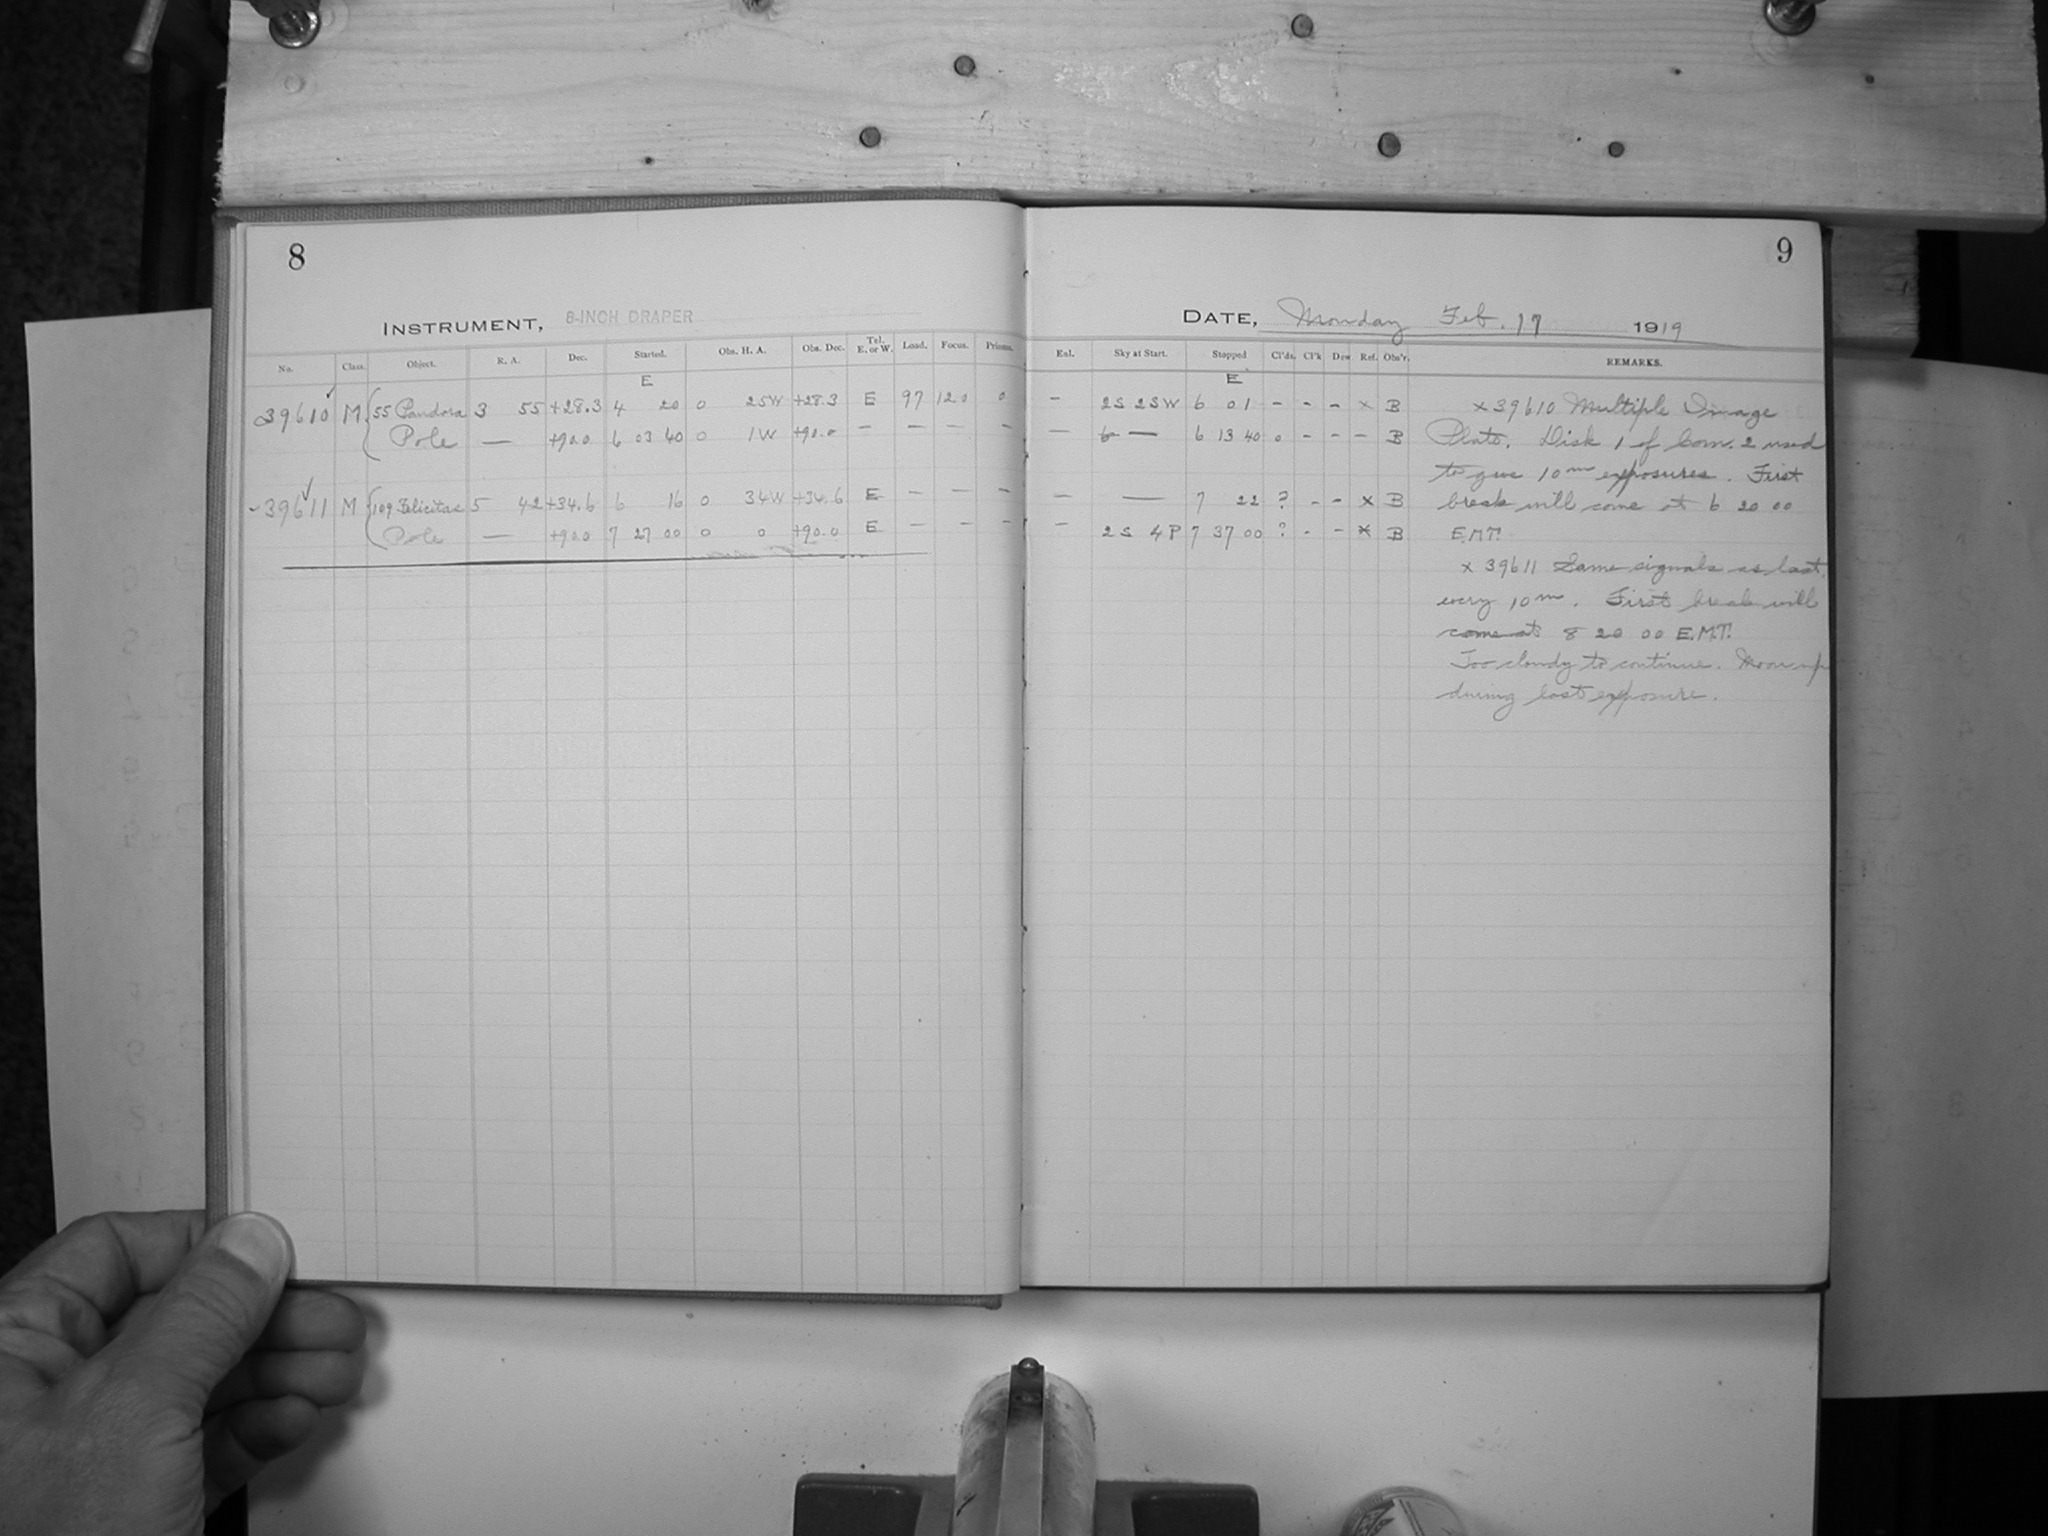 8
9
INSTRUMENT, 8-INCH DRAPER
DATE, Monday Feb. 17 1919
No. Class. Object. R. A. Dec. Started. Obs. H. A. Obs. Dec. Tel. E. or W. Load. Focus. Prisms.
Enl. Sky at Start. Stopped Cl'ds. Cl'k Dew. Ref. Obs'r. REMARKS.
E
E
39610 M 55 Pandora 3 55 +28.3 4 20 0 25W +28.3 E 97 12.0 0
- 2S 2SW 6 01 - - - x B
Pole — +90.0 6 03 40 0 1W +90.0 - - - -
— — 6 13 40 0 - - - B
39611 M 109 Felicitas 5 42 +34.6 6 16 0 34W +34.6 E - - -
— — 7 22 ? - - x B
Pole — +90.0 7 27 00 0 0 +90.0 E - - -
— 2S 4P 7 37 00 ? - - x B
x 39610 Multiple Image
Plate. Disk 1 of Com. 2 used
to give 10m exposures. First
break will come at 6 20 00
E.M.T.
x 39611 Same signals as last,
every 10m. First break will
come at 8 20 00 E.M.T.
Too cloudy to continue. Moon up
during last exposure.